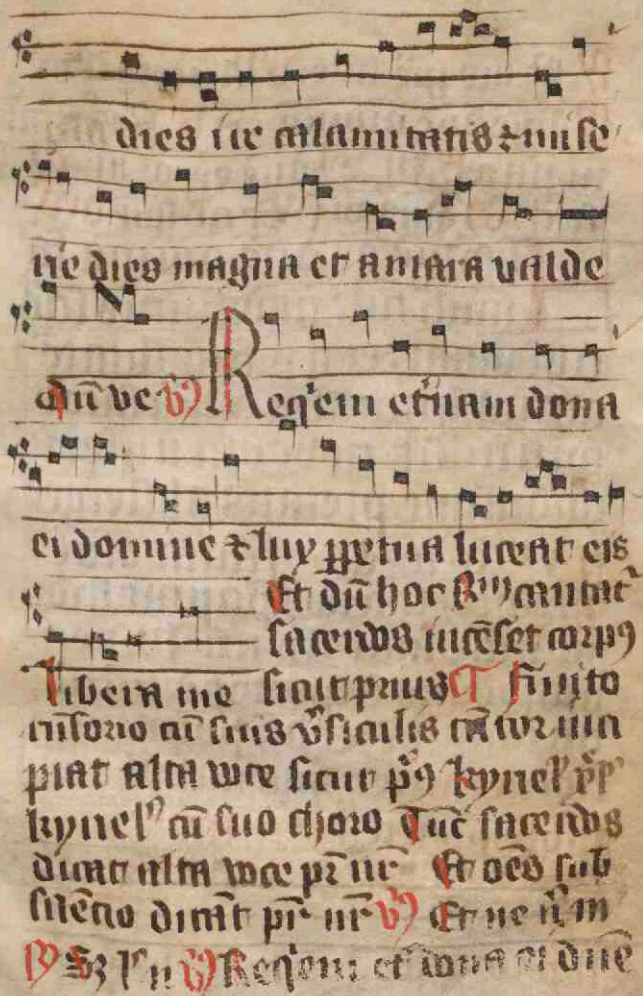 dies ire calamitatis ⁊ mise
rie dies magna et amara valde
Dū ve ℣ Req̇em et̾nam dona
ei domine ⁊ lux ꝑpetua luceat eis
Et dū hoc cantat̾
sacerdos incēset corpꝰ
libera me sicut prius ¶ finito
cū suis v̾siculis cātor inci
piat alta voce sicut pꝰ kyriel᷒ xp̄e
kyriel᷒ cū suo choro Tūc sacerdos
dicat alta voce pr̄ nr̄ Et oēs sub
silēcio dicāt pr̄ nr̄ ℣ Et ne
℟ Sȝ ℣ Req̇em et̾ dona ei dn̄e